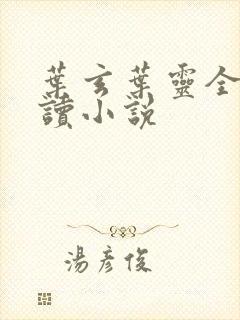 葉玄葉靈全
讀小說
湯彥俊